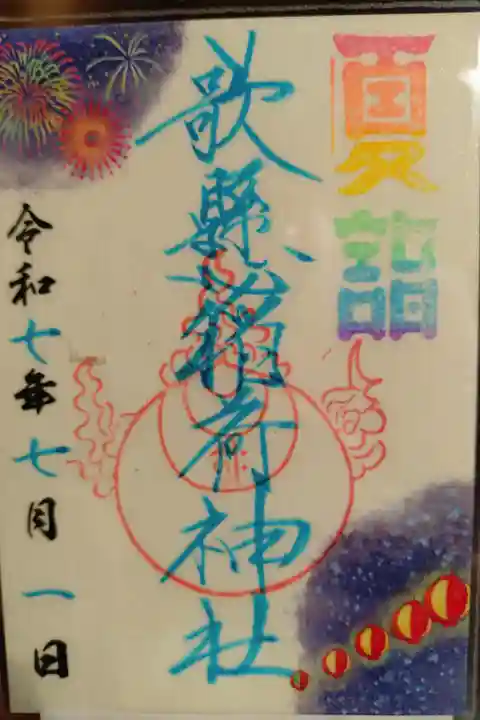 夏詣
歌懸稲荷神社
令和七年七月一日